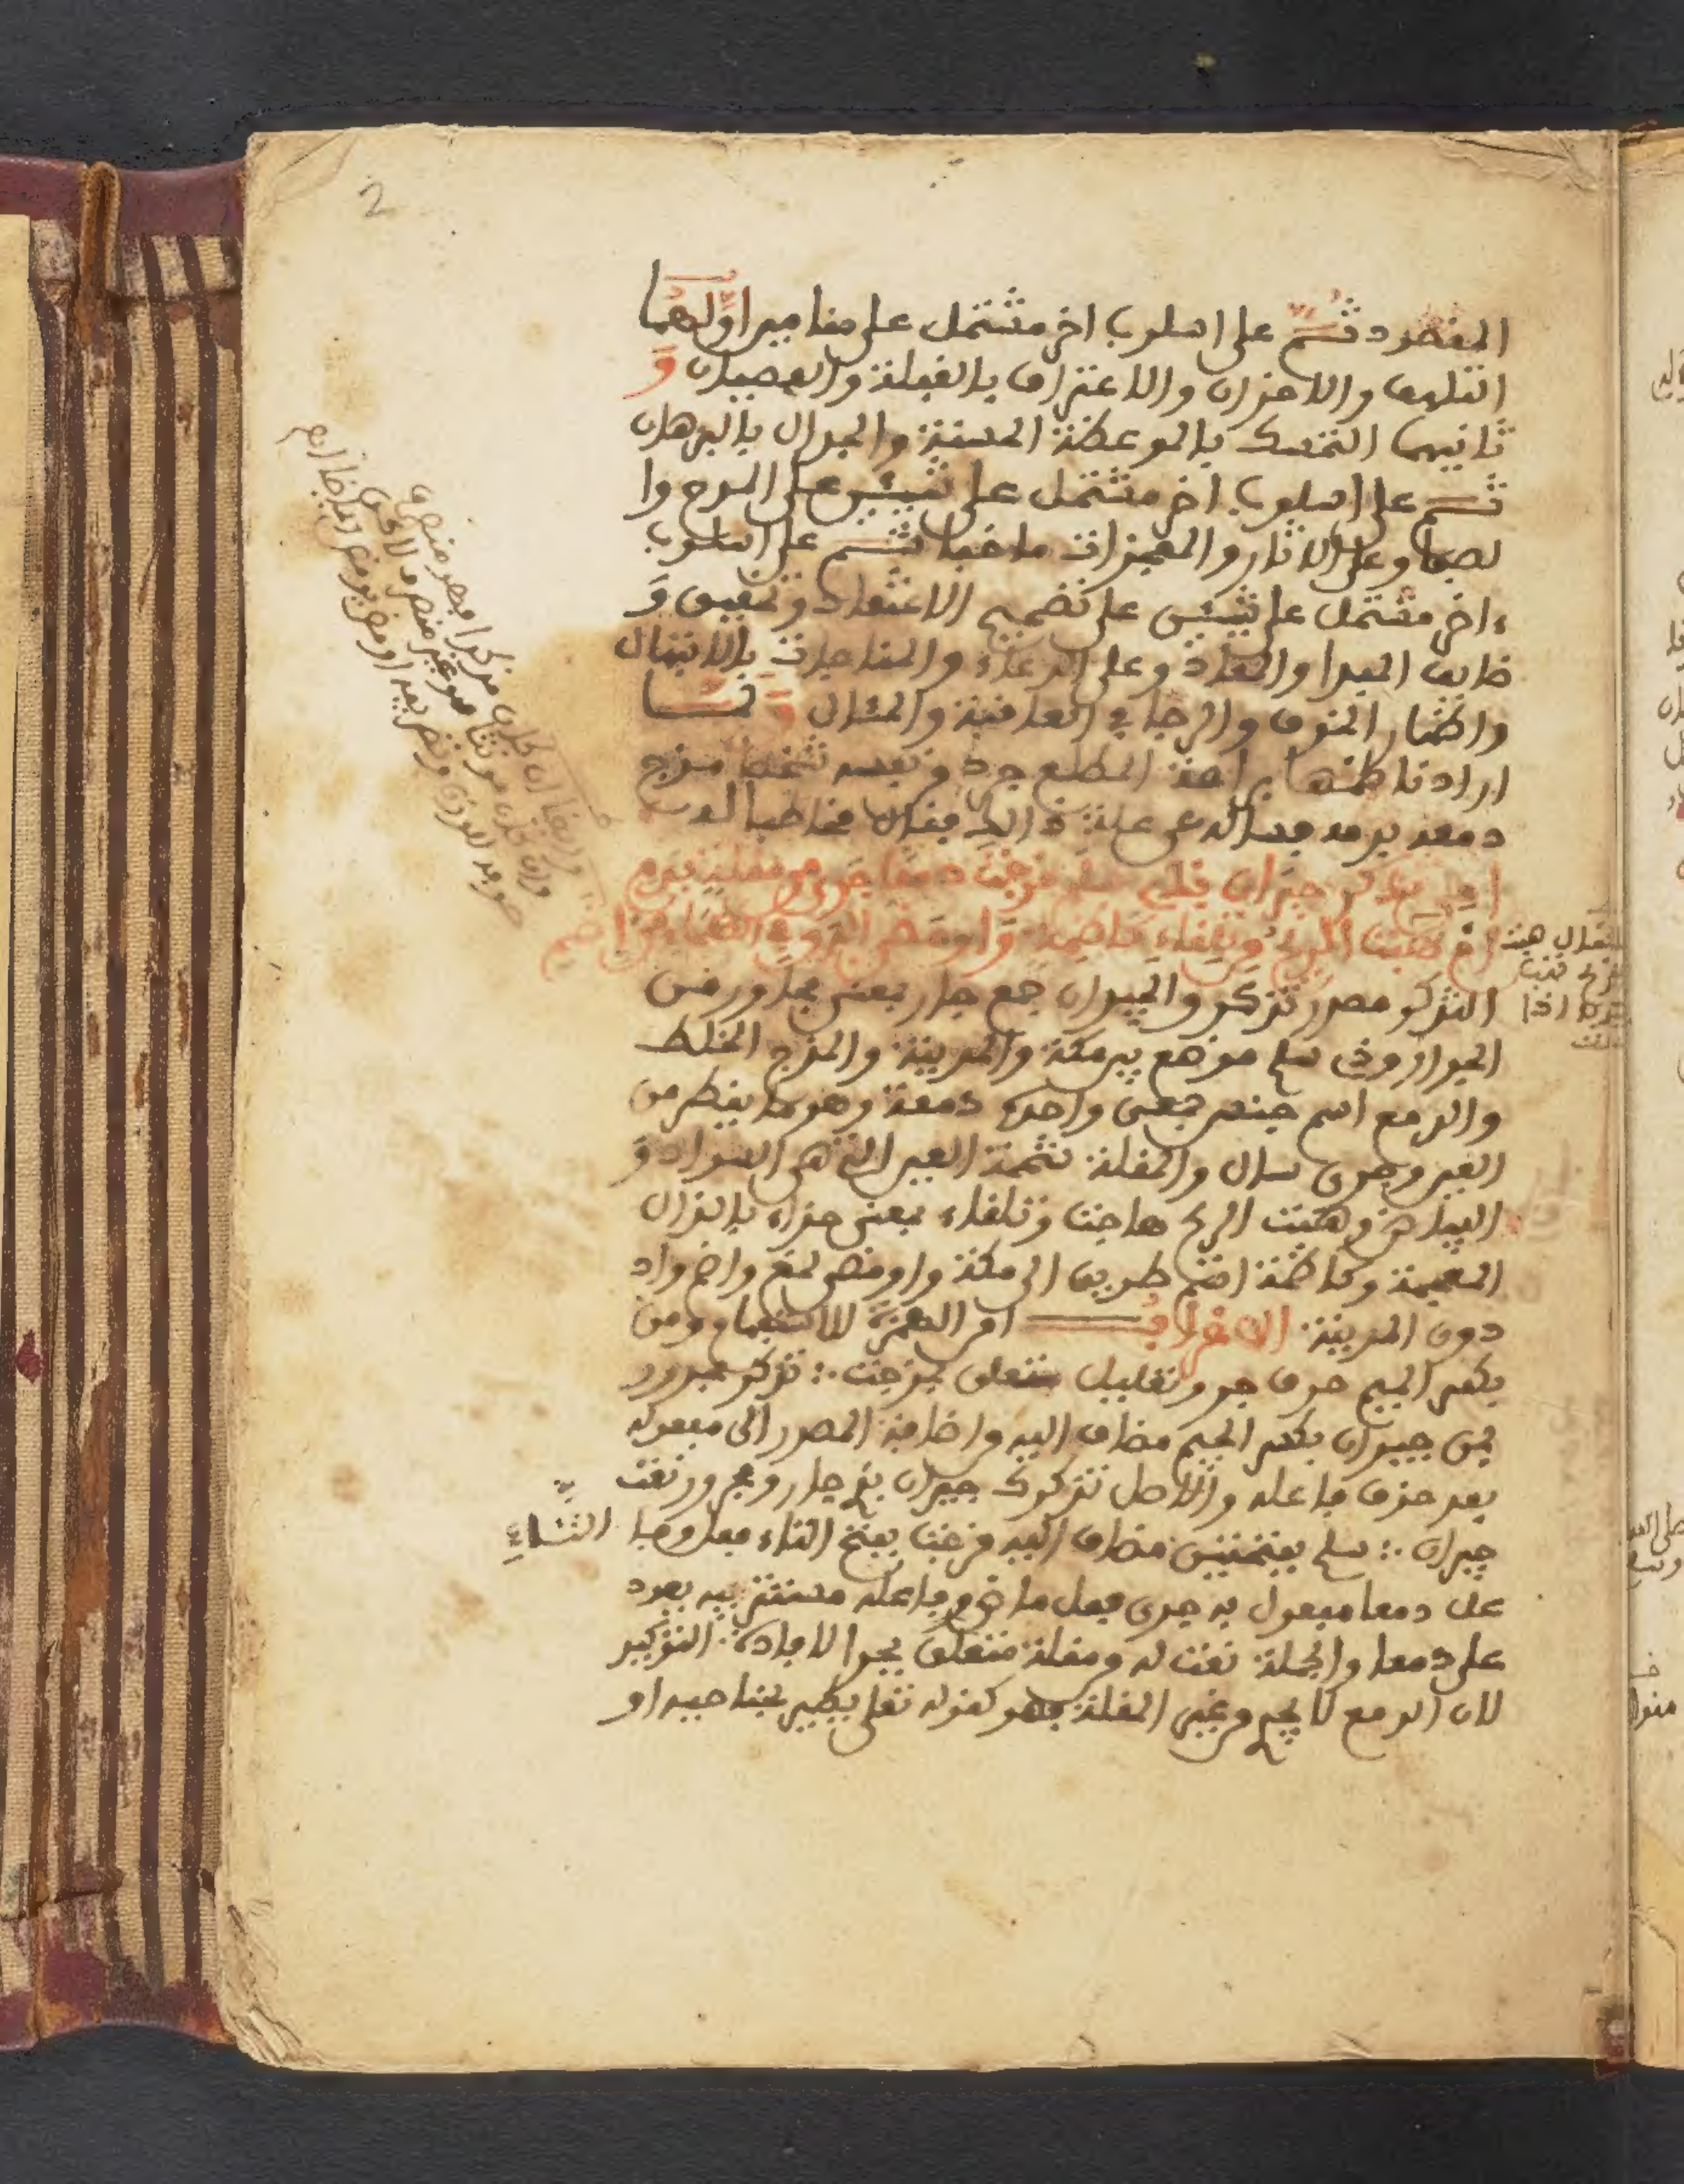 2
المقصود ثم على اسلوب اخر مشتمل على مقامين اولهما
التلهف والاحزان والاعتراف بالغفلة والعصيان و
ثانيهما التمسك بالموعظة الحسنة والجدال بالبرهان
ثم على اسلوب اخر مشتمل على شيئين على المدح وا
لصفا وعلى الاثار والمعجزات ثم على اسلوب
ءاخر مشتمل على شيئين على تصحيح الاعتقاد و تحقيق و
ظايف المبدا والمعاد وعلى الدعاء والمناجات بالابتهال
واظهار الخوف والرجا في العاقبة والمئال و لما
اراد ناظمها براعة المطلع جرد من نفسه شخصا مزج
دمعه بدمه فساله عن علة ذالك فقال مخاطبا له
امن تذكر جيران بذي سلم مزجت دمعا جرى من مقلة بدم
ام هبت الريح من تلقاء كاظمة واومض البرق في الظلماء من اضم
التذكر مصدر تذكر والجيران جمع جار بمعنى مجاور من
الجوار وذي سلم موضع بين مكة والمدينة والمزج الخلط
والدمع اسم جنس جمعي واحده دمعة وهو ما يقطر من
العين وجرى سال والمقلة شحمة العين التي هي السواد و
البياض وهبت الريح هاجت وتلقاء بمعنى حذاء بالذال
المعجمة وكاظمة اسم طريق الى مكة واومض لمع واضم واد
دون المدينة الاعراب امن الهمزة للاستفهام ومن
بكسر الميم حرف جر وتعليل متعلق بمزجت ∴ تذكر مجرور
بمن جيران بكسر الجيم مضاف اليه واضافة المصدر الى مفعوله
بعد حذف فاعله والاصل تذكرك جيران بذي جار ومجرور نعت
جيران ∴ سلم بفتحتين مضاف اليه مزجت بفتح التاء فعل وفا
عل دمعا مفعول به جرى فعل ماض وفاعله مستتر فيه يعود
على دمعا والجملة نعت له و مقلة متعلق بجرا لافادة التوكيد
لان الدمع لا يجري من غير المقلة فهو كقوله تعلى يطير بجناحيه او